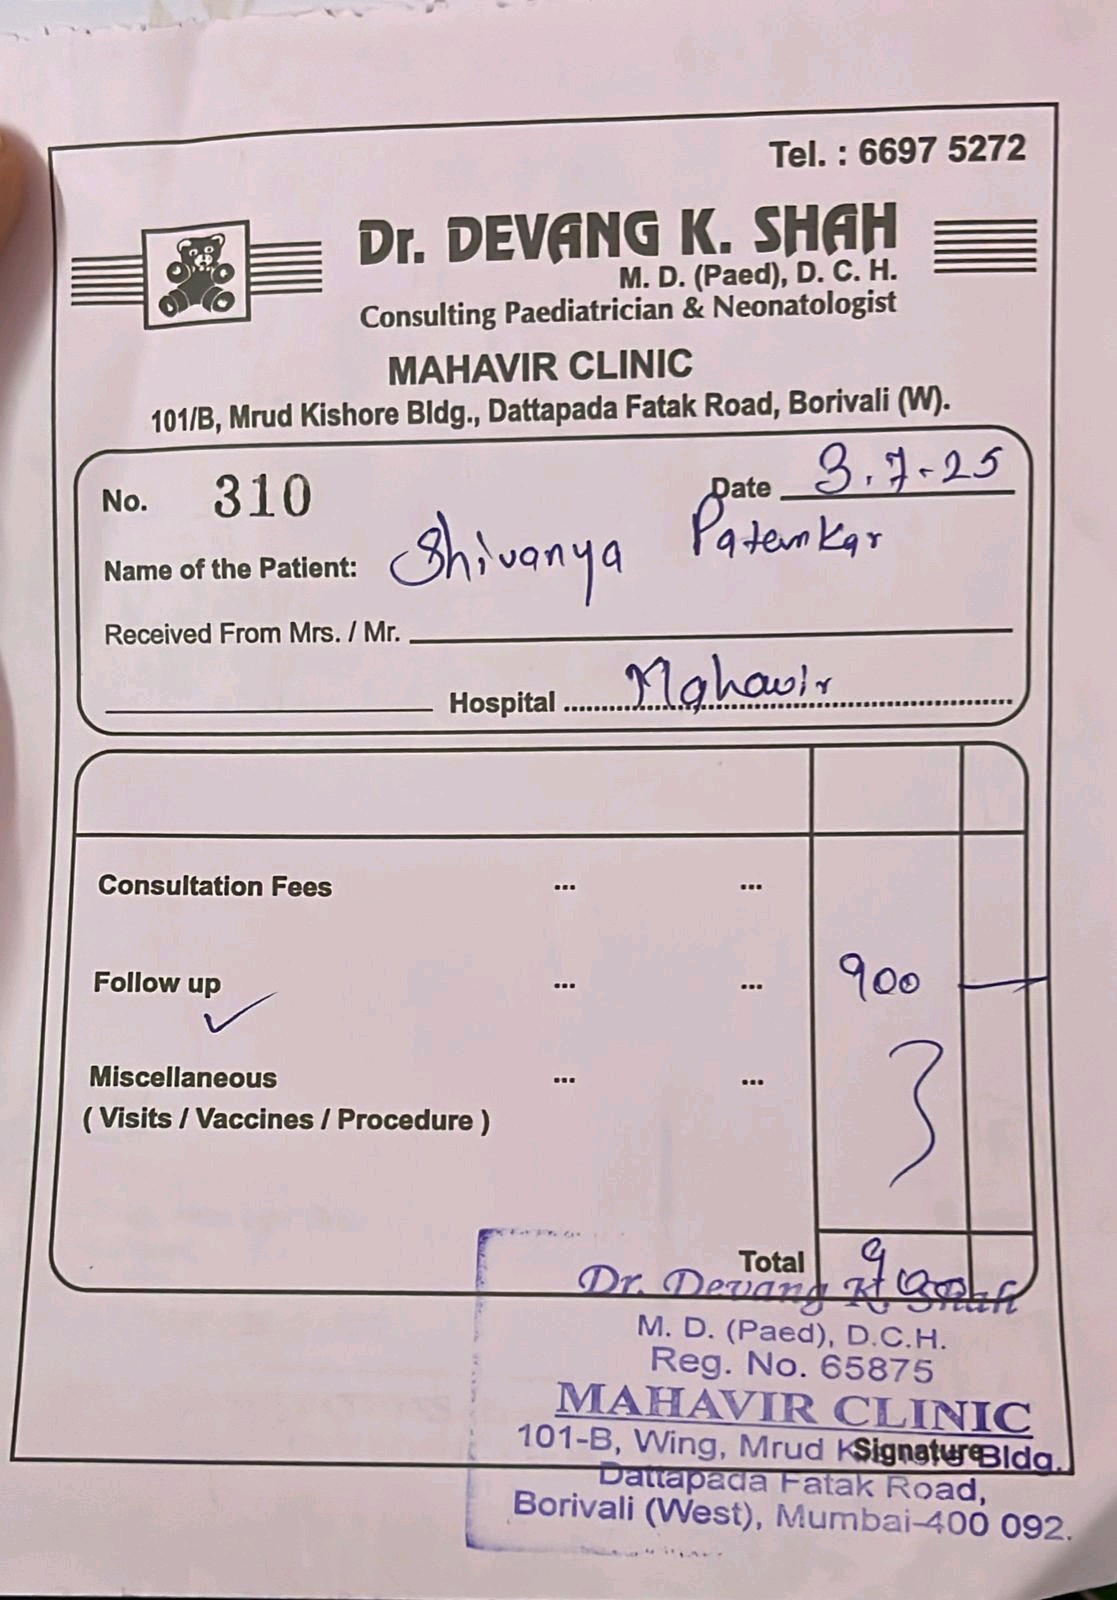 Tel. : 6697 5272
Dr. DEVANG K. SHAH
M. D. (Paed), D. C. H.
Consulting Paediatrician & Neonatologist
MAHAVIR CLINIC
101/B, Mrud Kishore Bldg., Dattapada Fatak Road, Borivali (W).
No. 310 Date 3.7-25
Name of the Patient: Shivanya Patemkar
Received From Mrs. / Mr.
Hospital Mahavir
Consultation Fees ... ...
Follow up ... ... 900
Miscellaneous ... ...
( Visits / Vaccines / Procedure )
Total 900
Dr. Devang K. Shah
M. D. (Paed), D.C.H.
Reg. No. 65875
MAHAVIR CLINIC
101-B, Wing, Mrud Kishore Bldg.
Signature
Dattapada Fatak Road,
Borivali (West), Mumbai-400 092.